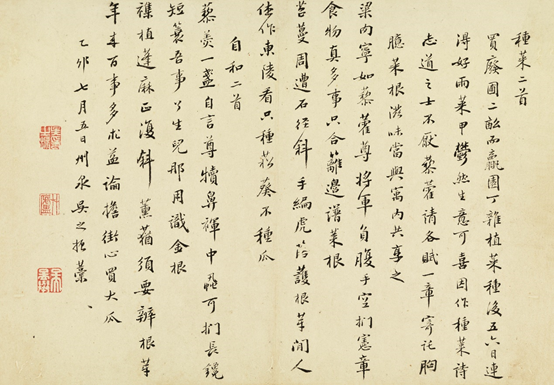 種菜二首
買廢圃二畝而羸園丁雜植菜種後五六日連
得好雨菜甲鬱然生意可喜因作種菜詩
志道之士不厭藜藿請各賦一章寄託胸
臆菜根滋味當與寓內共享之
粱肉寧如藜藿尊將軍負腹手空捫憲章
食物真多事只合籬邊譜菜根
苔蔓周遭石徑斜手編虎落護根芽閒人
怪作東陵看只種菘葵不種瓜
自和二首
藜羹一盞自言尊犢鼻褌中蝨可捫長鑱
短蓑吾事了生兒那用識金根
襍植蓬麻正復斜薰蕕須要辨根芽
年來百事多求益論擔街心買大瓜
乙卯七月五日州泉吳之振藁